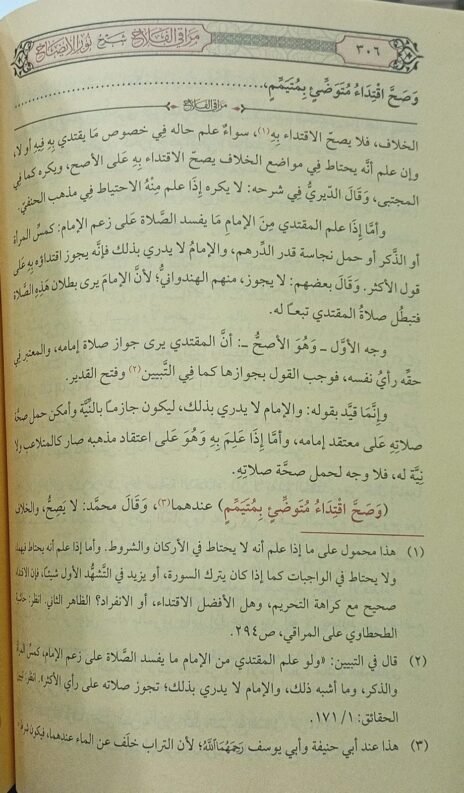 ٣٠٦
مَرَاقِي الفَلَاحِ شَرْحُ نُورِ الإِيضَاحِ
وَصَحَّ اقْتِدَاءُ مُتَوَضِّئٍ بِمُتَيَمِّمٍ،
مراقي الفلاح
الخلاف، فلا يصحّ الاقتداء بِهِ(١)، سواءٌ علم حاله فِي خصوص مَا يقتدي بِهِ فِيهِ أو لا،
وإن علم أنَّه يحتاط فِي مواضع الخلاف يصحّ الاقتداء بِهِ عَلَى الأصح، ويكره كما فِي
المجتبى، وَقَالَ الدّيريُّ فِي شرحه: لا يكره إِذَا علم مِنْهُ الاحتياط فِي مذهب الحنفيّ.
وأمَّا إِذَا علم المقتدي مِنَ الإمامِ مَا يفسد الصَّلاة عَلَى زعم الإمام: كمسِّ المرأة
أو الذَّكر أو حمل نجاسة قدر الدِّرهم، والإمامُ لا يدري بذلك فإنَّه يجوز اقتداؤه بِهِ عَلَى
قول الأكثر. وَقَالَ بعضهم: لا يجوز، منهم الهندوانيُّ؛ لأنَّ الإمامَ يرى بطلان هَذِهِ الصَّلاة
فتبطُل صلاةُ المقتدي تبعًا له.
وجه الأوَّل ـ وَهُوَ الأصحُّ ـ: أنَّ المقتدي يرى جواز صلاة إمامه، والمعتبر فِي
حقِّه رأيُ نفسه، فوجب القول بجوازها كما فِي التَّبيين(٢) وفتح القدير.
وإنَّمَا قيَّد بقوله: والإمام لا يدري بذلك، ليكون جازمًا بالنِّيَّة وأمكن حمل صحَّة
صلاتِهِ عَلَى معتقد إمامه، وأمَّا إِذَا عَلِمَ بِهِ وَهُوَ عَلَى اعتقاد مذهبه صار كالمتلاعب ولا
نيَّة له، فلا وجه لحمل صحَّة صلاتِهِ.
(وَصَحَّ اقْتِدَاءُ مُتَوَضِّئٍ بِمُتَيَمِّمٍ) عندهما(٣)، وَقَالَ محمَّد: لا يَصِحُّ، والخلاف
(١) هذا محمول على ما إذا علم أنه لا يحتاط في الأركان والشروط. وأما إذا علم أنه يحتاط فيهما
ولا يحتاط في الواجبات كما إذا كان يترك السورة، أو يزيد في التَّشهُّد الأول شيئًا، فإن الاقتداء
صحيح مع كراهة التحريم، وهل الأفضل الاقتداء، أو الانفراد؟ الظاهر الثاني. انظر: حاشية
الطحطاوي على المراقي، ص٢٩٤.
(٢) قال في التبيين: «ولو علم المقتدي من الإمام ما يفسد الصَّلاة على زعم الإمام، كمسِّ المرأة
والذكر، وما أشبه ذلك، والإمام لا يدري بذلك؛ تجوز صلاته على رأي الأكثر». انظر: تبيين
الحقائق: ١/ ١٧١.
(٣) هذا عند أبي حنيفة وأبي يوسف رَحِمَهُمَااللَّهُ؛ لأن التراب خلَف عن الماء عندهما، فيكون